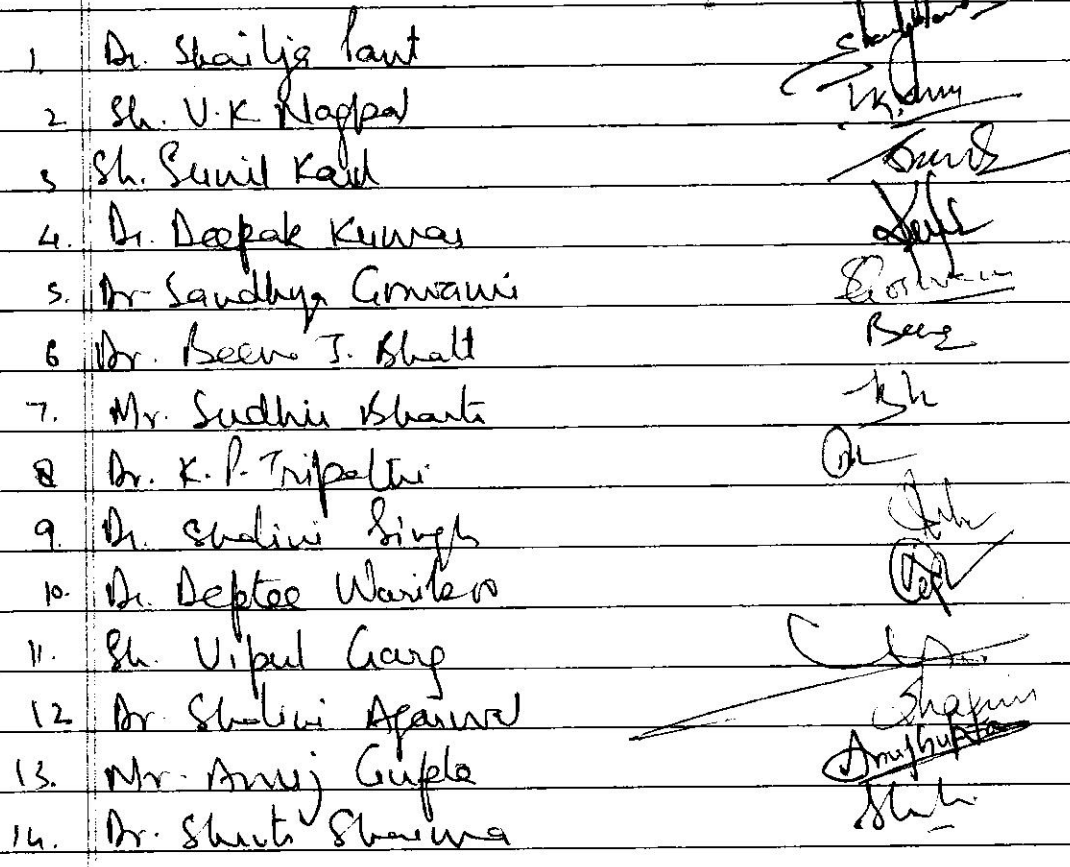 1. Dr. Shailja Pant
2 Sh. V.K Nagpal
3 Sh. Sunil Kaul
4. Dr. Deepak Kumar
5. Dr. Sandhya Goswami Goswami
6 Dr. Beena J. Bhatt Beena
7. Mr. Sudhir Bharti
8 Dr. K. P. Tripathi
9. Dr. Shalini Singh
10. Dr. Deptee Warikoo
11. Sh. Vipul Garg
12 Dr Shalini Agarwal
13. Mr. Anuj Gupta Anuj Gupta
14. Dr. Shruti Sharma